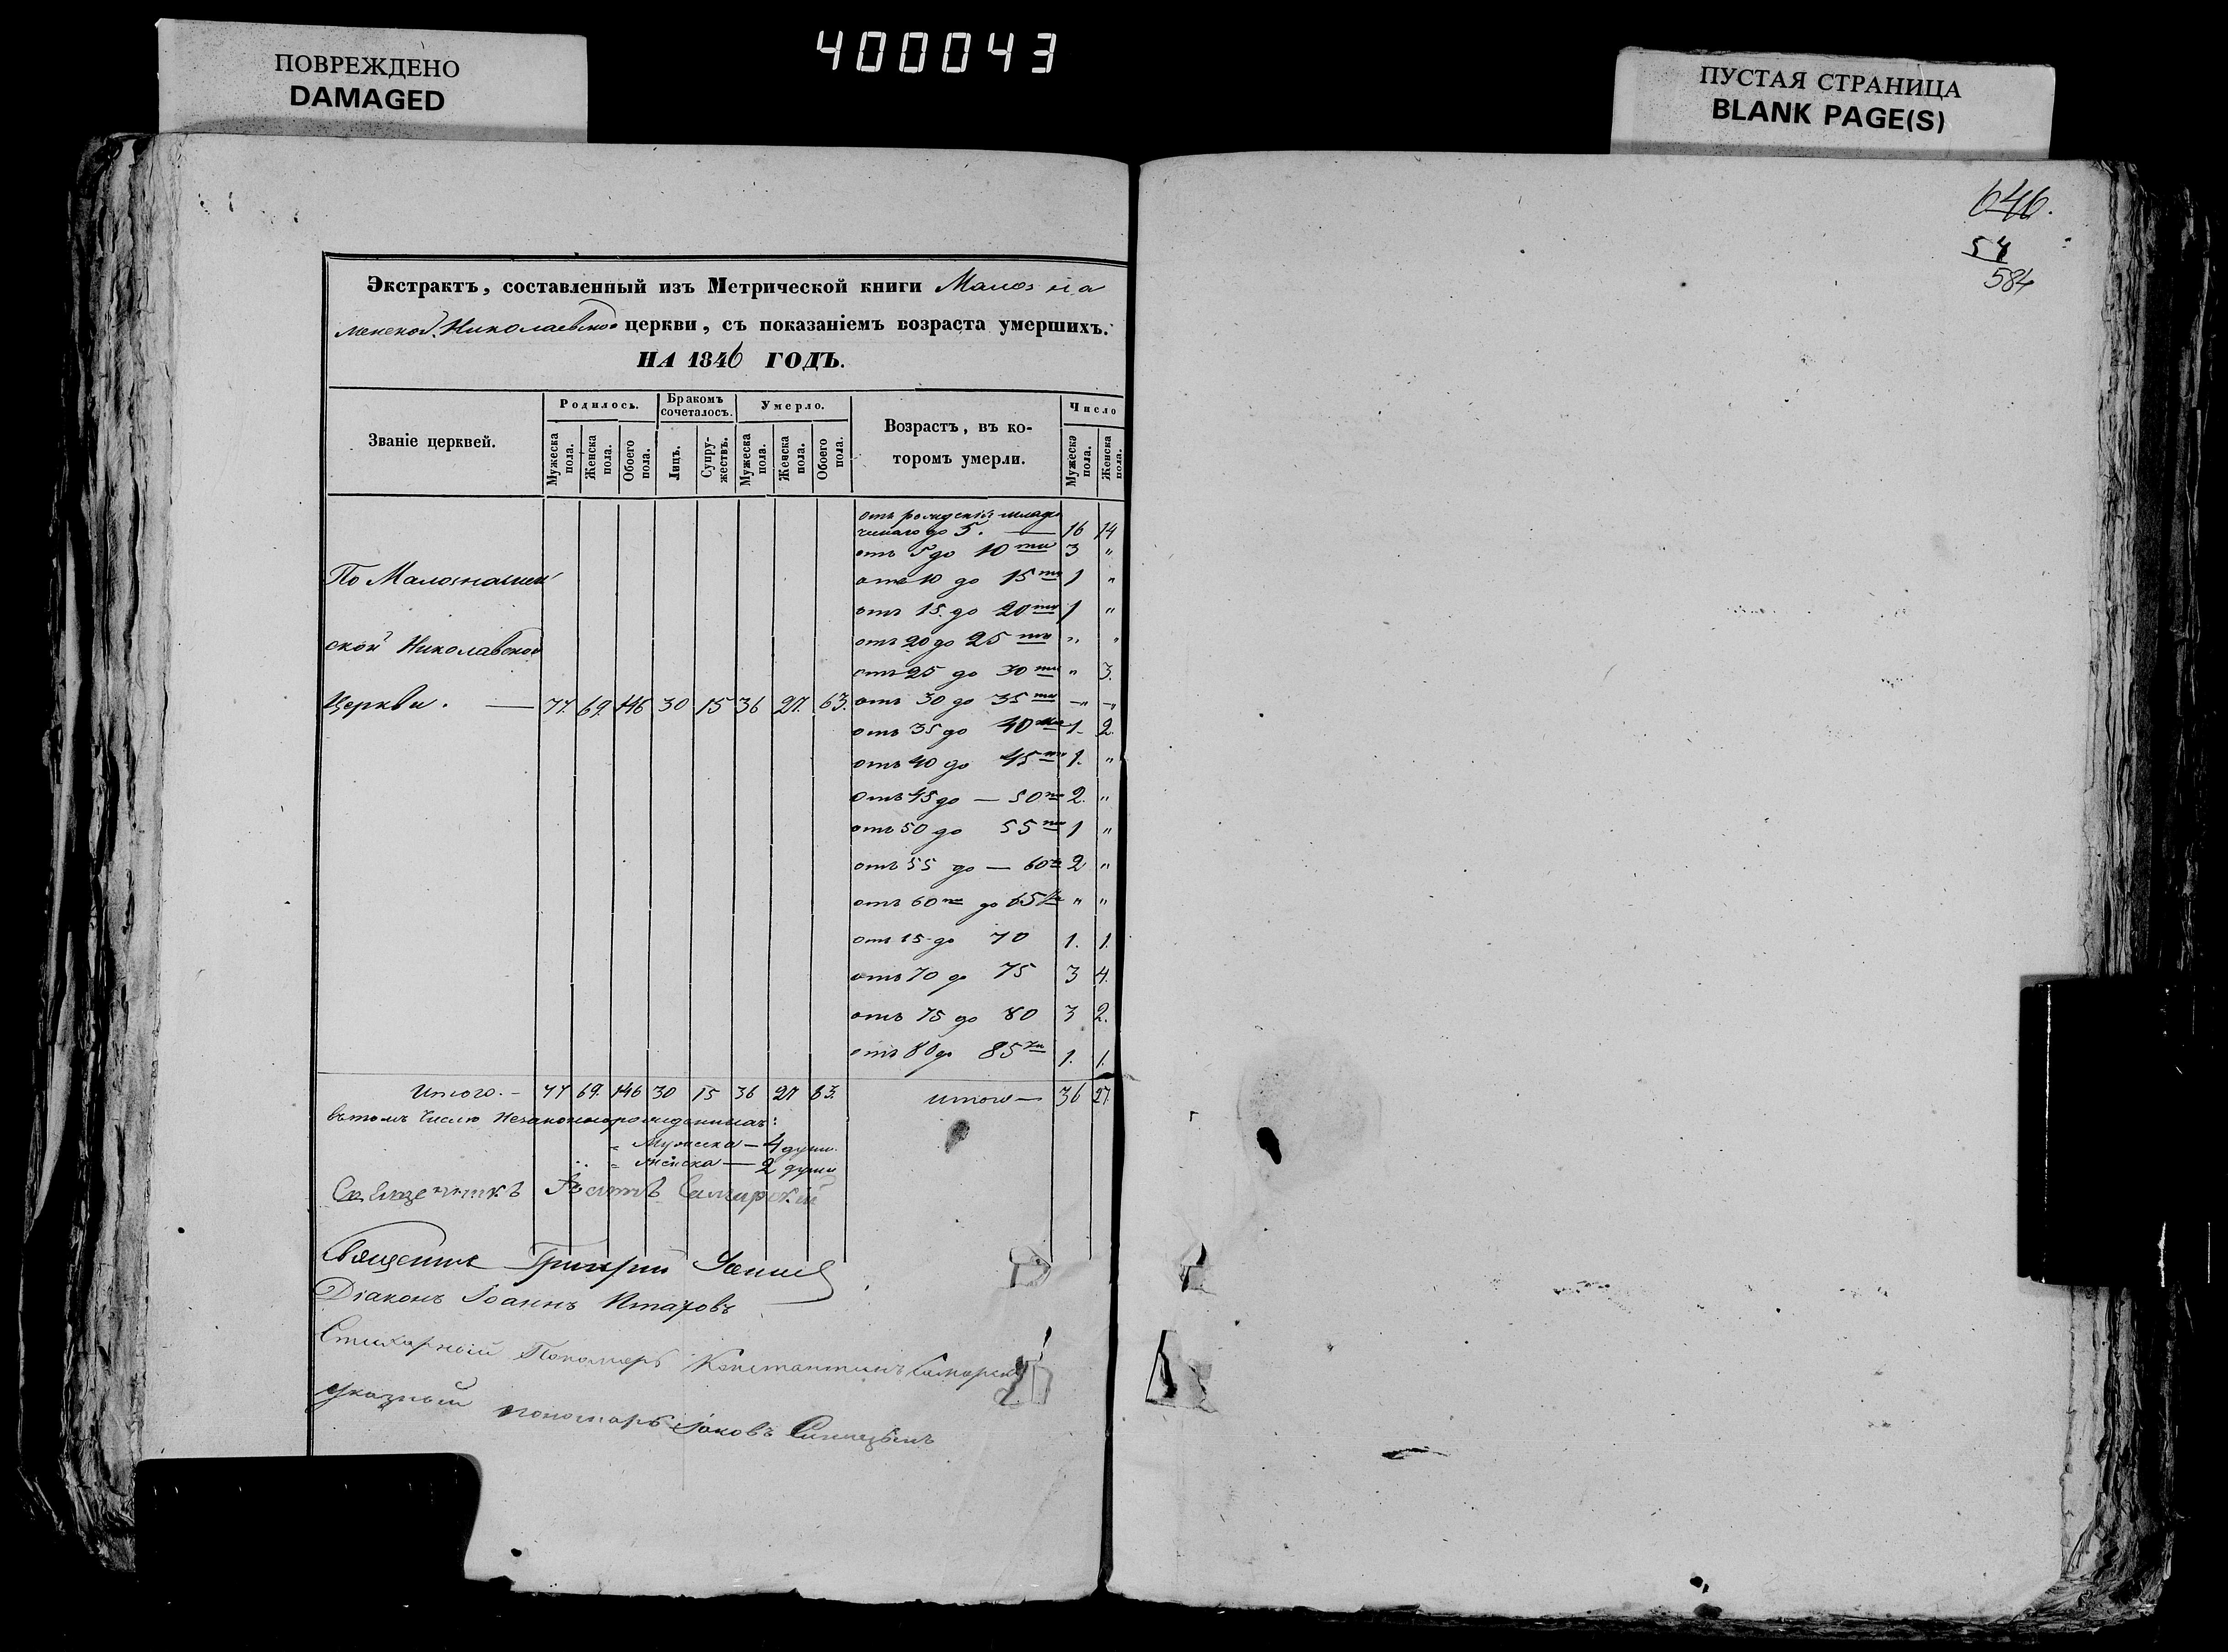 ПОВРЕЖДЕНО
DAMAGED
400043
ПУСТАЯ СТРАНИЦА
BLANK PAGE(S)
646.
54
584
Экстрактъ, составленный изъ Метрической книги Малоз на
менской Николаевской церкви, съ показаніемъ возраста умершихъ.
НА 1846 ГОДЪ.
Званіе церквей.
Родилось.
Бракомъ сочеталось.
Умерло.
Возрастъ, въ которомъ умерли.
Число
Мужеска пола.
Женска пола.
Обоего пола.
Лицъ.
Супружествъ.
Мужеска пола.
Женска пола.
Обоего пола.
Мужеска пола.
Женска пола.
до 5. — 16 14
отъ 5 до 10ти 3 "
По Малознамен
отъ 10 до 15ти 1 "
отъ 15 до 20ти 1 "
ской Николавской
отъ 20 до 25ти " "
отъ 25 до 30ти " 3.
Церкви. — 77. 69. 146 30 15 36 27. 63.
отъ 30 до 35ти " "
отъ 35 до 40ка 1. 2.
отъ 40 до 45ти 1. "
отъ 45 до — 50ти 2. "
отъ 50 до 55ти 1 "
отъ 55 до — 60ти 2 "
отъ 60ти до 65ти " "
отъ 65 до 70 1. 1.
отъ 70 до 75 3 4.
отъ 75 до 80 3 2.
отъ 80 до 85ти 1. 1.
Итого. — 77 69. 146 30 15 36 27 63. итого — 36 27.
въ томъ числѣ незаконнорожденныхъ:
" Мужеска — 4 души.
" Женска — 2 души
Священникъ Самарскій
Священникъ Григорій
Діаконъ Іоаннъ
Стихарный Пономарь Константинъ Самарскій
указный пономарь Іаковъ